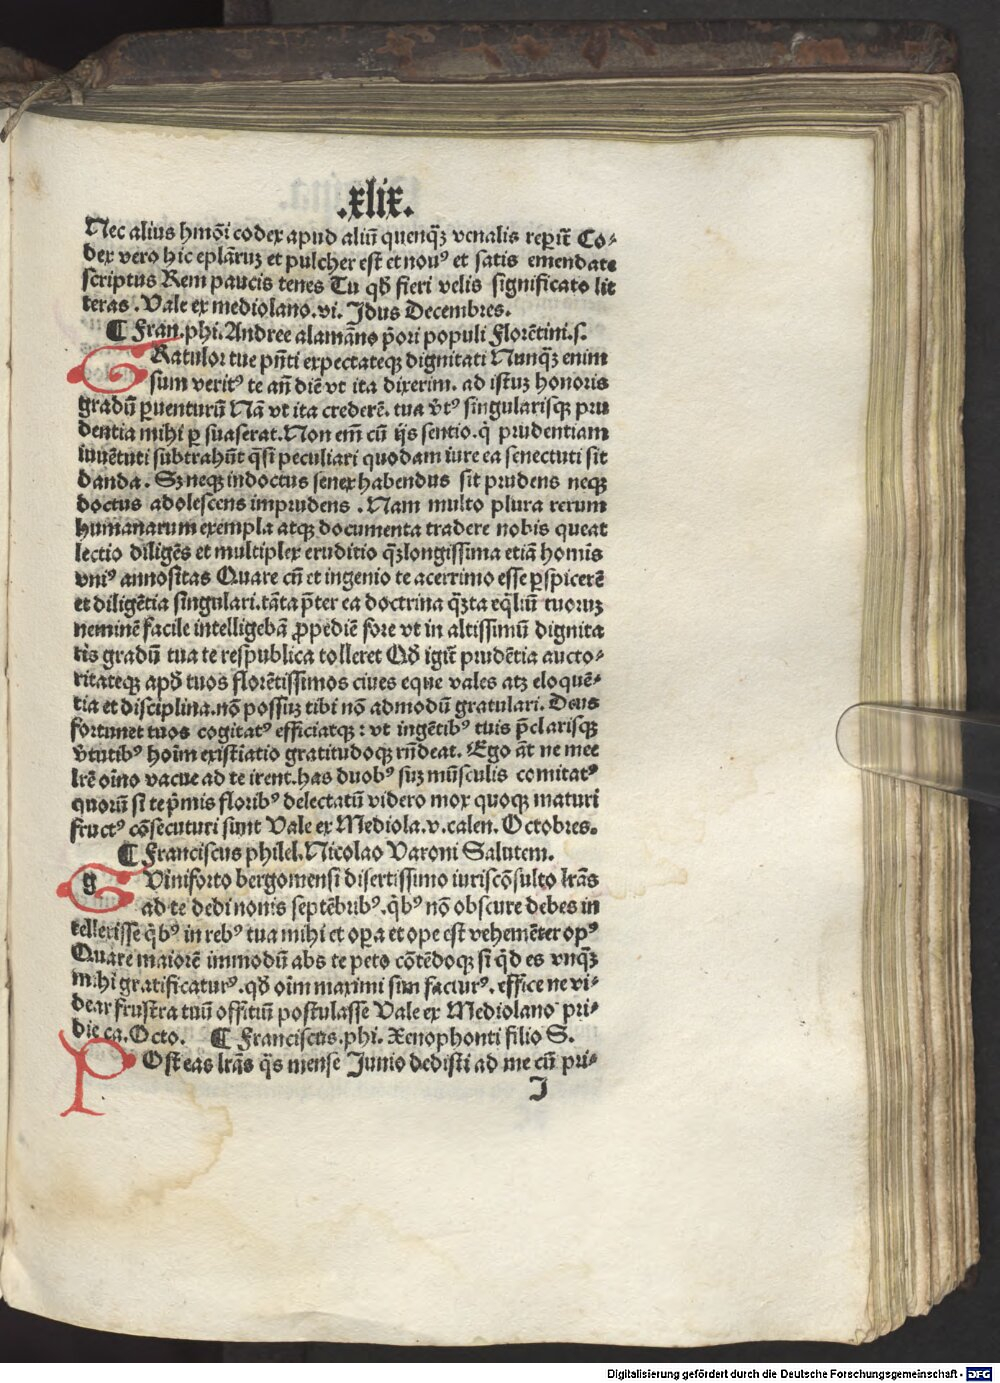 .xlix.
Nec alius hmōi codex apud aliū quenqꝫ venalis reperit̄ Co-
dex vero hic eplāruꝫ et pulcher est et nouꝰ et satis emendate
scriptus Rem paucis tenes Tu qđ fieri velis significato lit
teras . Vale ex mediolano.vi. Jdus Decembres.
¶ Fran.phi.Andree alamāno p̄ori populi Florētini.s.
GRatulor tue pn̄ti expectateqꝫ dignitati Nunqꝫ enim
sum veritꝰ te an̄ diē vt ita dixerim. ad istuꝫ honoris
gradū ꝑuenturū Nā vt ita crederē. tua v̄tꝰ singularisqꝫ pru
dentia mihi ꝑ suaserat.Non em̄ cū ijs sentio.q̇ prudentiam
iuuētuti subtrahūt q̄si peculiari quodam iure ea senectuti sit
danda . Sꝫ neqꝫ indoctus senex habendus sit prudens neqꝫ
doctus adolescens imprudens . Nam multo plura rerum
humanarum exempla atqꝫ documenta tradere nobis queat
lectio diligēs et multiplex eruditio qꝫ longissima etiā homis
vniꝰ annositas Quare cū et ingenio te acerrimo esse ꝑspicerē
et diligētia singulari.tāta p̄ter ea doctrina qꝫta eq̄liū tuoruꝫ
neminē facile intelligebā ꝓpediē fore vt in altissimū dignita
tis gradū tua te respublica tolleret Qđ igit̄ prudētia aucto-
ritateqꝫ apđ tuos florētissimos ciues eque vales atꝫ eloquē-
tia et disciplina.nō possuꝫ tibi nō admodū gratulari. Deus
fortunet tuos cogitatꝰ efficiatqꝫ : vt ingētibꝰ tuis p̄clarisqꝫ
v̄tutibꝰ hoīm existiatio gratitudoqꝫ rn̄deat. Ego āt ne mee
lrē oīno vacue ad te irent.has duobꝰ suꝫ mūsculis comitatꝰ
quorū si te p̄mis floribꝰ delectatū videro mox quoqꝫ maturi
fructꝰ cōsecuturi sunt Vale ex Mediola.v.calen. Octobres.
¶ Franciscus philel.Nicolao Varoni Salutem.
GViniforto bergomensi disertissimo iuriscōsulto lrās
ad te dedi nonis septēbribꝰ.qḃꝰ nō obscure debes in
tellexisse qḃꝰ in rebꝰ tua mihi et opa et ope est vehemēter opꝰ
Quare maiorē immodū abs te peto cōtēdoqꝫ si qđ es vnqꝫ
mihi gratificaturꝰ. qđ oīm maximi sim facturꝰ. effice ne vi-
dear frustra tuū offitiū postulasse Vale ex Mediolano pri-
die ca.Octo. ¶ Franciscus.phi. Xenophonti filio S.
POst eas lrās q̄s mense Junio dedisti ad me cū pri-
J
Digitalisierung gefördert durch die Deutsche Forschungsgemeinschaft - DFG